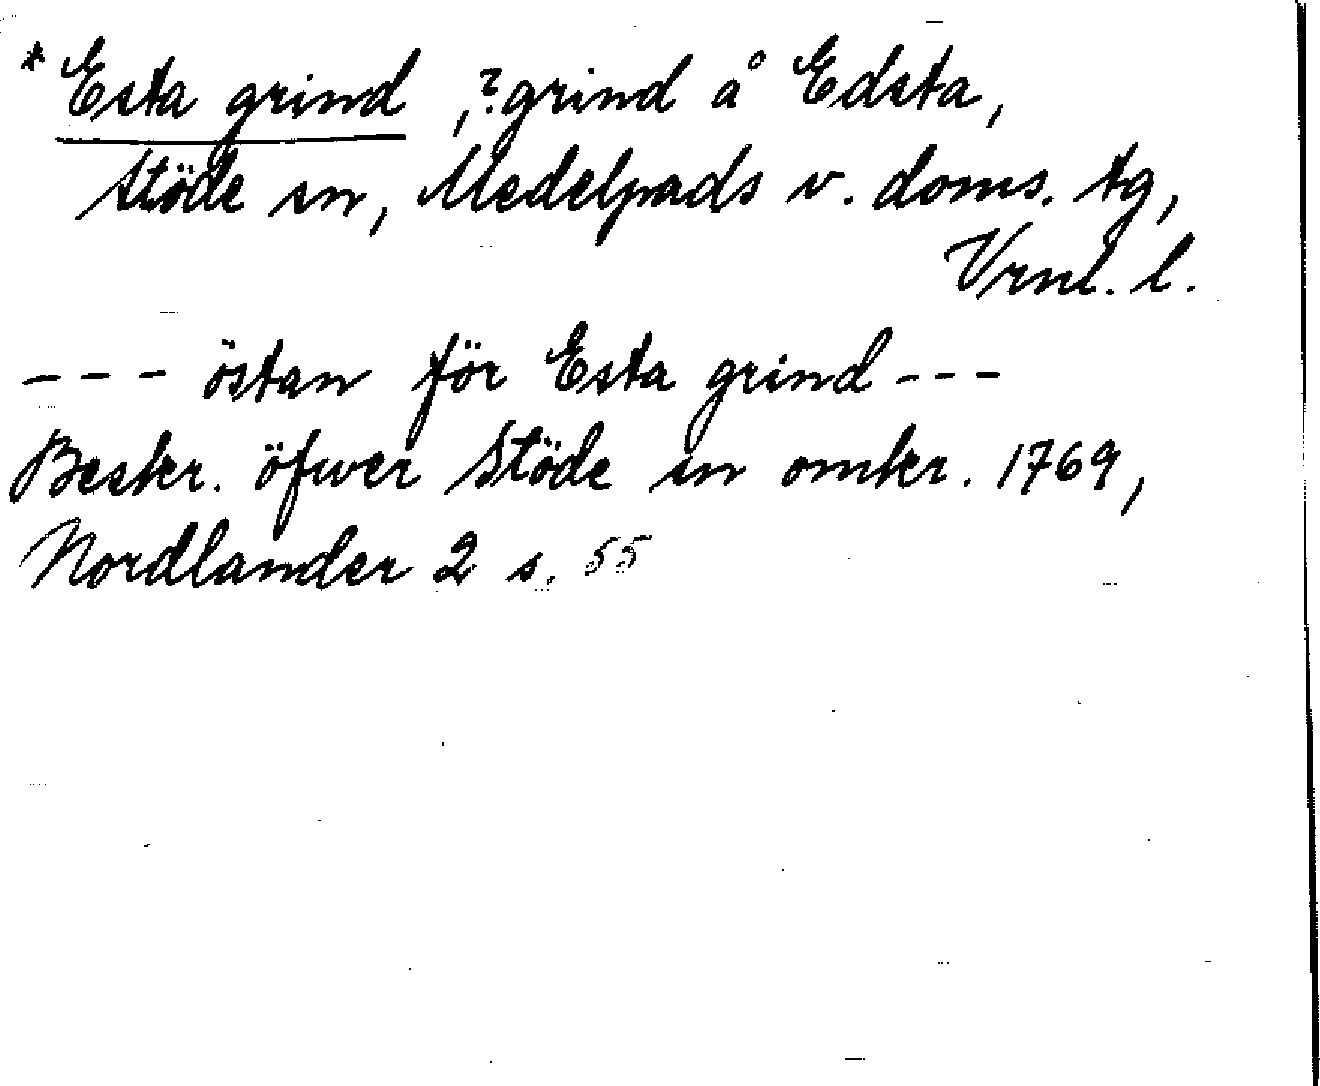 * Esta grind, ? grind å Edsta,
Stöde sn, Medelpads v. doms. tg,
Vrnl. l.
--- östan för Esta grind ---
Beskr. öfwer Stöde sn omkr. 1769,
Nordlander 2 s. 55